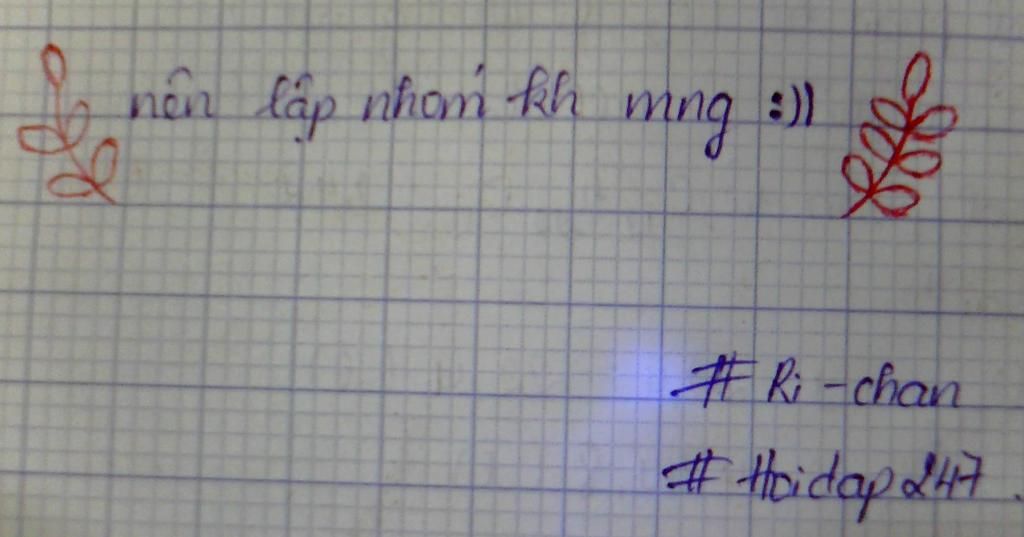 nên lập nhóm kh mng :))
# Ri-chan
# Hoidap247.